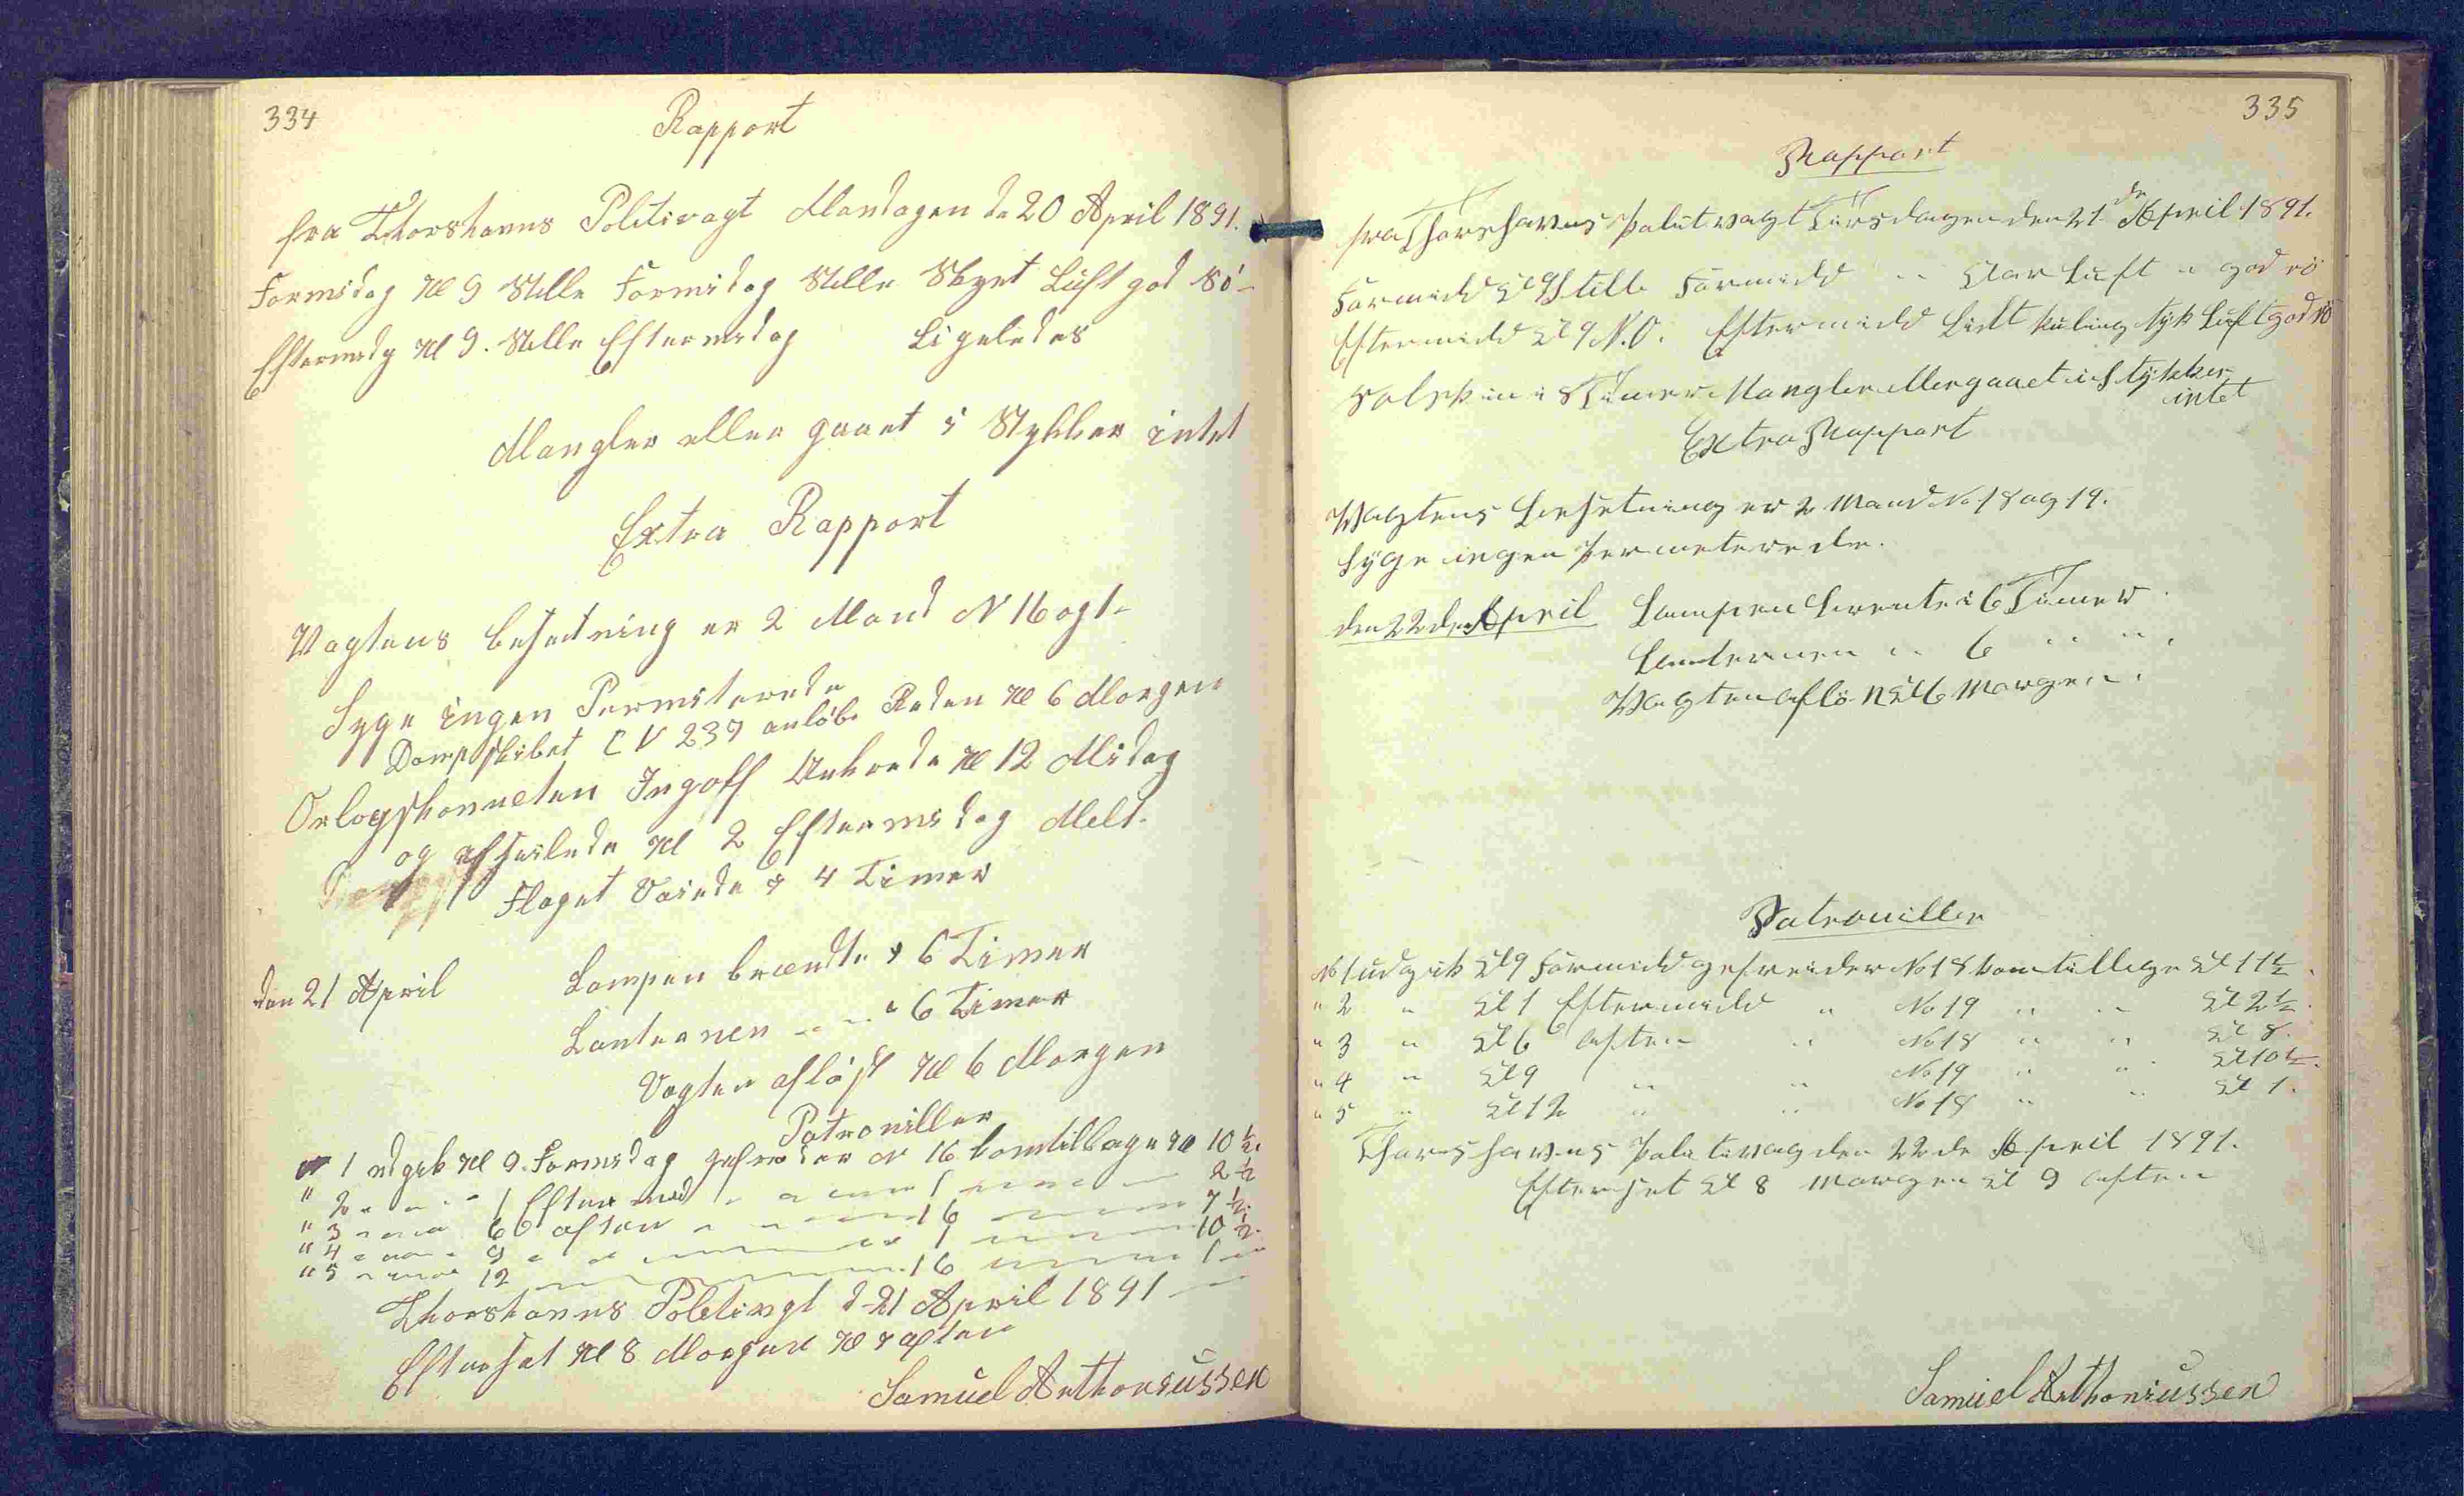 334
Rapport
fra Thorshavns Politivagt Mandagen de 20 April 1891.
Formidag Kl 9 Stille Formidag Stille Skyet Luft god Rö-
Eftermdg Kl 9. Stille Eftermidag Ligeledes
Mangler eller gaaet i Stykker intet
Extra Rapport
Vagtens besætning er 2 Mand N 16 og 1-
Syge ingen Permiterede
Dampskibet C V 237 anlöb Reden Kl 6 Morgen
Orlogskonneten Ingolf Ankrede Kl 12 Midag
og afseilede Kl 2 Eftermidag
Flaget Vaiede i 4 Timer
den 21 April Lampen brændte i 6 Timer
Lanternen " " " 6 Timer
Vagten aflöst Kl 6 Morgen
Patroniller
N 1 udgik Kl 9. Formidag gefreider N 16 komtilbage Kl 10½.
" 2 " " " 1 Eftermid " " " 1 " " " 2½
" 3 " " " 6 aften " " " 16 " " " 7½.
" 4 " " " 9 " " " " 1 " " " 10½.
" 5 " " " 12 " " " " 16 " " " 1 "
Thorshavns Politivgt d 21 April 1891
Efterset Kl 8 Morgen Kl 9 aften
Samuel Anthoniussen
335
Rapport
fra Thorshavns Politivagt Tirsdagen den 21 de April 1891.
Formidd Kl 9 Stille Formidd " " Klar Luft " god rö
Eftermidd Kl 9 N.O. Eftermidd Lidt kuling tyk Luft god rö
Solskin i 8 Timer Mangler ellergaaet i Stykker
intet
Extra Rapport
Vagtens Besetning er 2 Mand No 18 og 19.
Syge ingen Permeterede.
den 22 de April Lampen brente i 6 Timer
Lanternen " " 6 " " " "
Vagten aflö. Kl 6 Morgen.
Patrouiller
No 1 udgik Kl 9 Formidd gefreider No 18 kom tillage Kl 11½.
" 2 " Kl 1 Eftermidd " No 19 " " Kl 2½.
" 3 " Kl 6 aften " No 18 " " Kl 8.
" 4 " Kl 9 " " No 19 " " Kl 10½.
" 5 " Kl 12 " " No 18 " " Kl 1.
Thorshavns Politivag den 22 de April 1891.
Efterset Kl 8 Morgen Kl 9 aften
Samuel Anthoniussen